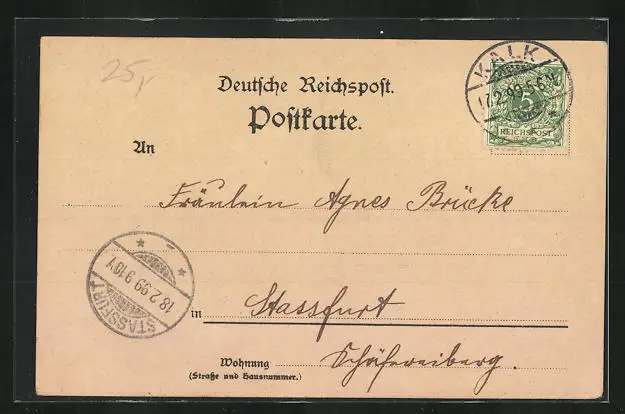 25,-
Deutsche Reichspost.
Postkarte.
KALK
17.2.99.5-6N.
5
REICHSPOST
An
Fräulein Agnes Brücke
STASSFURT
18.2.99.9-10V.
in Stassfurt
Wohnung Schäfereiberg.
(Straße und Hausnummer.)